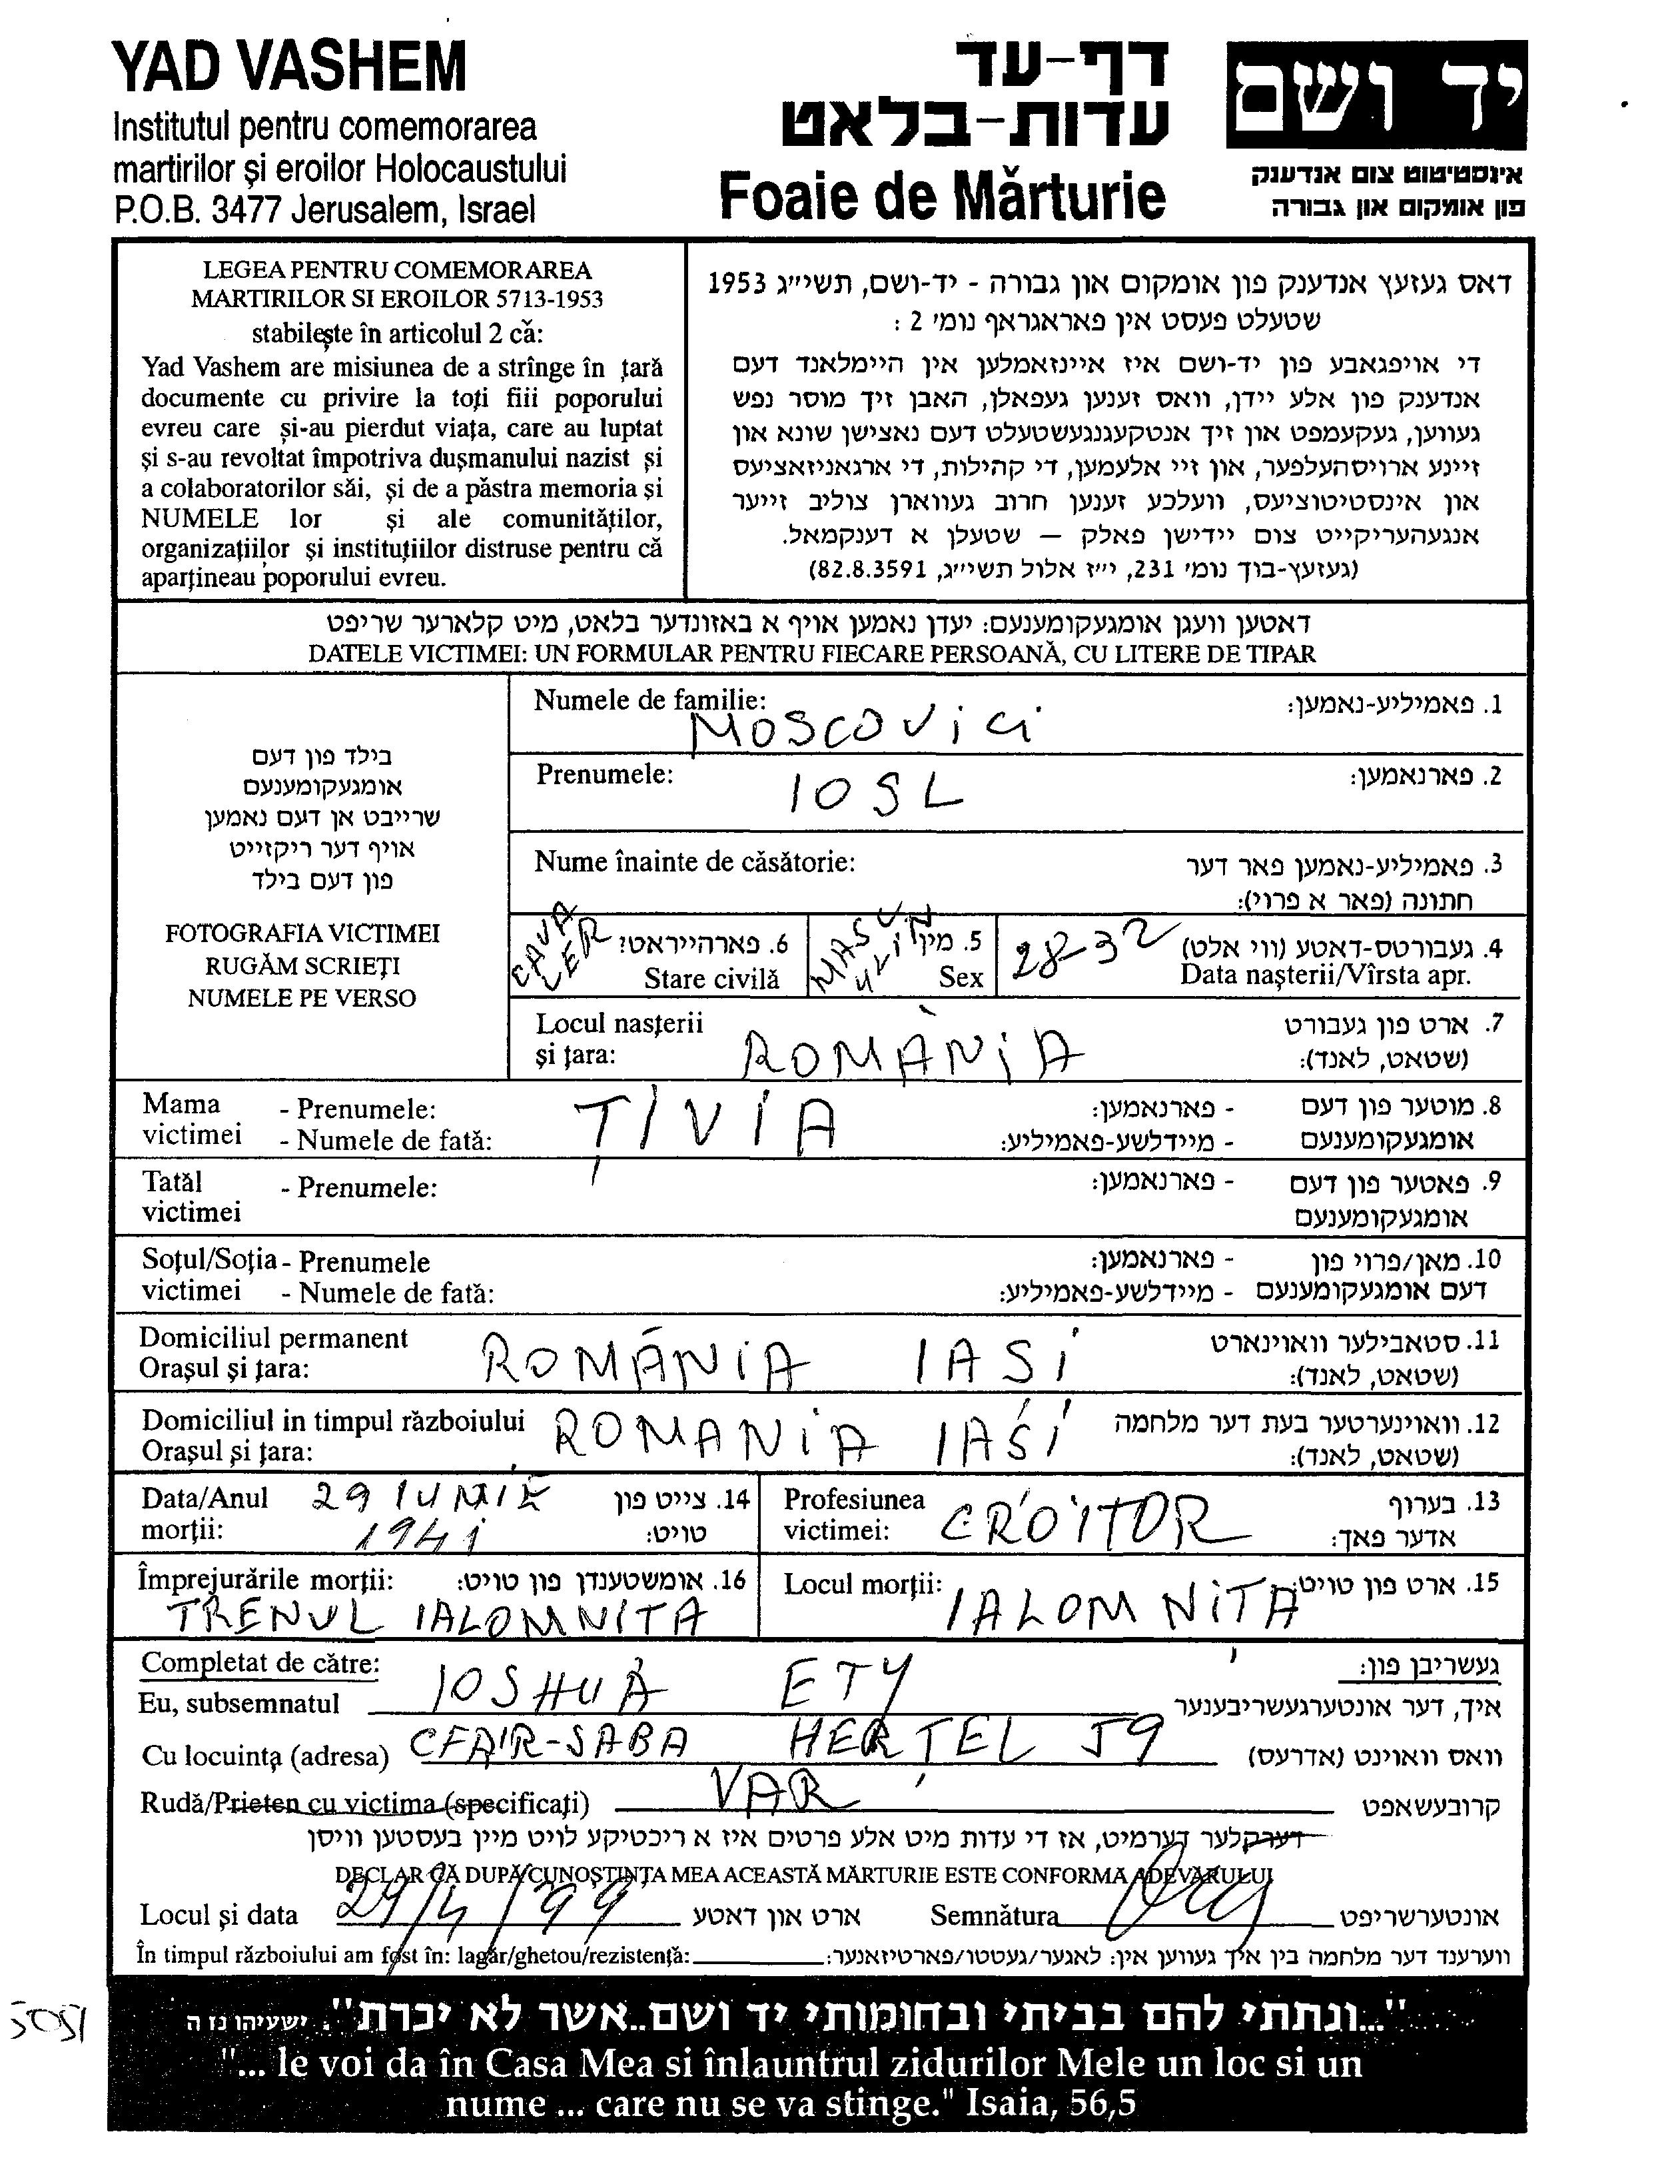 YAD VASHEM
Institutul pentru comemorarea
martirilor și eroilor Holocaustului
P.O.B. 3477 Jerusalem, Israel
דף-עד
עדות-בלאט
Foaie de Mărturie
יד ושם
אינסטיטוט צום אנדענק
פון אומקום און גבורה
LEGEA PENTRU COMEMORAREA
MARTIRILOR SI EROILOR 5713-1953
stabilește în articolul 2 că:
Yad Vashem are misiunea de a strînge în țară
documente cu privire la toți fiii poporului
evreu care și-au pierdut viața, care au luptat
și s-au revoltat împotriva dușmanului nazist și
a colaboratorilor săi, și de a păstra memoria și
NUMELE lor și ale comunităților,
organizațiilor și instituțiilor distruse pentru că
aparțineau poporului evreu.
דאס געזעץ אנדענק פון אומקום און גבורה - יד-ושם, תשי״ג 1953
שטעלט פעסט אין פאראגראף נומ׳ 2 :
די אויפגאבע פון יד-ושם איז איינזאמלען אין היימלאנד דעם
אנדענק פון אלע יידן, וואס זענען געפאלן, האבן זיך מוסר נפש
געווען, געקעמפט און זיך אנטקעגנגעשטעלט דעם נאצישן שונא און
זיינע ארויסהעלפער, און זיי אלעמען, די קהילות, די ארגאניזאציעס
און אינסטיטוציעס, וועלכע זענען חרוב געווארן צוליב זייער
אנגעהעריקייט צום יידישן פאלק — שטעלן א דענקמאל.
(געזעץ-בוך נומ׳ 231, י״ז אלול תשי״ג, 82.8.3591)
דאטען וועגן אומגעקומענעם: יעדן נאמען אויף א באזונדער בלאט, מיט קלארער שריפט
DATELE VICTIMEI: UN FORMULAR PENTRU FIECARE PERSOANĂ, CU LITERE DE TIPAR
בילד פון דעם
אומגעקומענעם
שרייבט אן דעם נאמען
אויף דער ריקזייט
פון דעם בילד
FOTOGRAFIA VICTIMEI
RUGĂM SCRIEȚI
NUMELE PE VERSO
Numele de familie: MOSCOVICI 1. פאמיליע-נאמען:
Prenumele: IOSL 2. פארנאמען:
Nume înainte de căsătorie: 3. פאמיליע-נאמען פאר דער
חתונה (פאר א פרוי):
CAVALER 6. פארהייראט: Stare civilă
MASCULIN 5. מין Sex
28-32 4. געבורטס-דאטע (ווי אלט)
Data nașterii/Vîrsta apr.
Locul nașterii 7. ארט פון געבורט
și țara: ROMÀNIA (שטאט, לאנד):
Mama - Prenumele: TIVIA - פארנאמען: 8. מוטער פון דעם
victimei - Numele de fată: - מיידלשע-פאמיליע: אומגעקומענעם
Tatăl - Prenumele: - פארנאמען: 9. פאטער פון דעם
victimei אומגעקומענעם
Soțul/Soția - Prenumele - פארנאמען: 10. מאן/פרוי פון
victimei - Numele de fată: - מיידלשע-פאמיליע: דעם אומגעקומענעם
Domiciliul permanent 11. סטאבילער וואוינארט
Orașul și țara: ROMÂNIA IASI (שטאט, לאנד):
Domiciliul in timpul războiului ROMANIA IASI 12. וואוינערטער בעת דער מלחמה
Orașul și țara: (שטאט, לאנד):
Data/Anul 29 IUNIE 14. צייט פון
morții: 1941 טויט:
Profesiunea 13. בערוף
victimei: CROITOR אדער פאך:
Împrejurările morții: 16. אומשטענדן פון טויט:
TRENUL IALOMNITA
Locul morții: IALOMNITA 15. ארט פון טויט:
Completat de către: געשריבן פון:
Eu, subsemnatul IOSHUA ETY איך, דער אונטערגעשריבענער
Cu locuința (adresa) CFAR-SABA HERTEL 59 וואס וואוינט (אדרעס)
Rudă/Prieten cu victima (specificați) VAR קרובעשאפט
דערקלער דערמיט, אז די עדות מיט אלע פרטים איז א ריכטיקע לויט מיין בעסטען וויסן
DECLAR CĂ DUPĂ CUNOȘTINȚA MEA ACEASTĂ MĂRTURIE ESTE CONFORMA ADEVĂRULUI
Locul și data 29/4/99 ארט און דאטע Semnătura אונטערשריפט
În timpul războiului am fost în: lagăr/ghetou/rezistență: ווערענד דער מלחמה בין איך געווען אין: לאגער/געטטו/פארטיזאנער:
"...ונתתי להם בביתי ובחומותי יד ושם..אשר לא יכרת". ישעיהו נז ה
"... le voi da în Casa Mea si înlauntrul zidurilor Mele un loc si un
nume ... care nu se va stinge." Isaia, 56,5